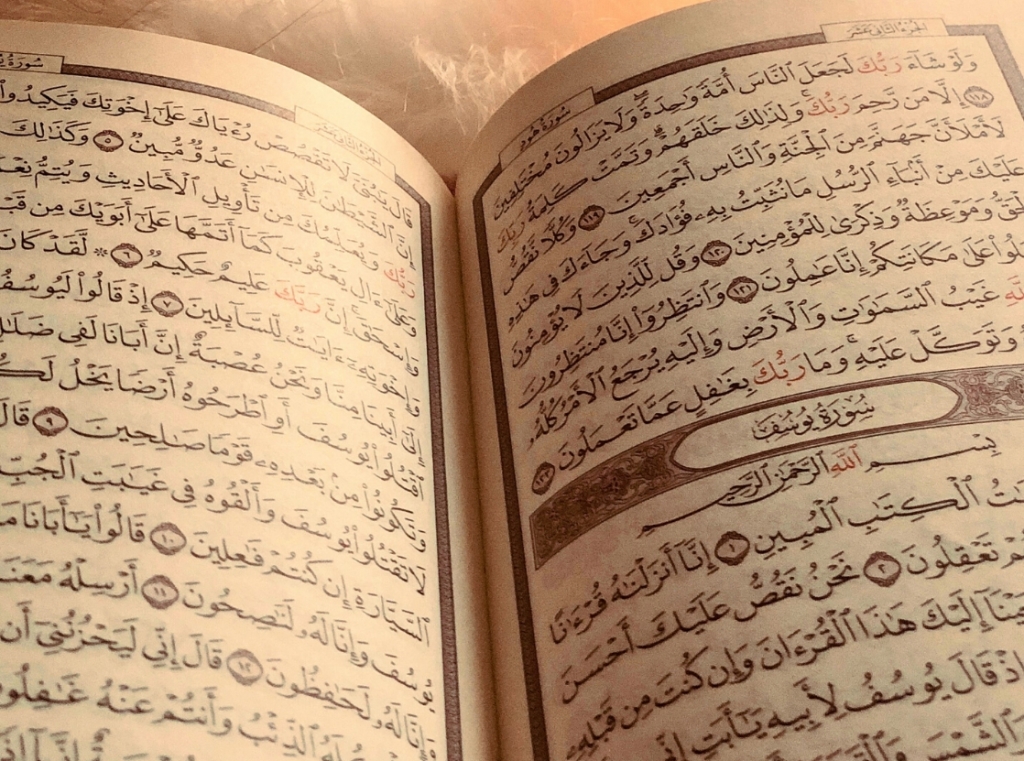 الجزء الثاني عشر
سورة هود
وَلَوْ شَآءَ رَبُّكَ لَجَعَلَ ٱلنَّاسَ أُمَّةً وَٰحِدَةً ۖ وَلَا يَزَالُونَ مُخْتَلِفِينَ
١١٨ إِلَّا مَن رَّحِمَ رَبُّكَ ۚ وَلِذَٰلِكَ خَلَقَهُمْ ۗ وَتَمَّتْ كَلِمَةُ رَبِّكَ
لَأَمْلَأَنَّ جَهَنَّمَ مِنَ ٱلْجِنَّةِ وَٱلنَّاسِ أَجْمَعِينَ ١١٩ وَكُلًّا نَّقُصُّ
عَلَيْكَ مِنْ أَنۢبَآءِ ٱلرُّسُلِ مَا نُثَبِّتُ بِهِۦ فُؤَادَكَ ۚ وَجَآءَكَ فِى هَٰذِهِ
وَمَوْعِظَةٌ وَذِكْرَىٰ لِلْمُؤْمِنِينَ ١٢٠ وَقُل لِّلَّذِينَ لَا يُؤْمِنُونَ
عَلَىٰ مَكَانَتِكُمْ إِنَّا عَٰمِلُونَ ١٢١ وَٱنتَظِرُوٓا۟ إِنَّا مُنتَظِرُونَ
غَيْبُ ٱلسَّمَٰوَٰتِ وَٱلْأَرْضِ وَإِلَيْهِ يُرْجَعُ ٱلْأَمْرُ كُلُّهُۥ
وَتَوَكَّلْ عَلَيْهِ ۚ وَمَا رَبُّكَ بِغَٰفِلٍ عَمَّا تَعْمَلُونَ ١٢٣
سُورَةُ يُوسُفَ
بِسْمِ ٱللَّهِ ٱلرَّحْمَٰنِ ٱلرَّحِيمِ
ٱلْكِتَٰبِ ٱلْمُبِينِ ١ إِنَّآ أَنزَلْنَٰهُ قُرْءَٰنًا
تَعْقِلُونَ ٢ نَحْنُ نَقُصُّ عَلَيْكَ أَحْسَنَ
إِلَيْكَ هَٰذَا ٱلْقُرْءَانَ وَإِن كُنتَ مِن قَبْلِهِۦ
إِذْ قَالَ يُوسُفُ لِأَبِيهِ يَٰٓأَبَتِ إِنِّى
وَٱلشَّمْسَ وَٱلْقَمَرَ
الجزء الثاني عشر
سورة
قَالَ يَٰبُنَىَّ لَا تَقْصُصْ رُءْيَاكَ عَلَىٰٓ إِخْوَتِكَ فَيَكِيدُوا۟
إِنَّ ٱلشَّيْطَٰنَ لِلْإِنسَٰنِ عَدُوٌّ مُّبِينٌ ٥ وَكَذَٰلِكَ
رَبُّكَ وَيُعَلِّمُكَ مِن تَأْوِيلِ ٱلْأَحَادِيثِ وَيُتِمُّ
وَعَلَىٰٓ ءَالِ يَعْقُوبَ كَمَآ أَتَمَّهَا عَلَىٰٓ أَبَوَيْكَ مِن
وَإِسْحَٰقَ ۚ إِنَّ رَبَّكَ عَلِيمٌ حَكِيمٌ ٦ ۞ لَّقَدْ كَانَ
وَإِخْوَتِهِۦٓ ءَايَٰتٌ لِّلسَّآئِلِينَ ٧ إِذْ قَالُوا۟ لَيُوسُفُ
إِلَىٰٓ أَبِينَا مِنَّا وَنَحْنُ عُصْبَةٌ إِنَّ أَبَانَا لَفِى ضَلَٰلٍ
ٱقْتُلُوا۟ يُوسُفَ أَوِ ٱطْرَحُوهُ أَرْضًا يَخْلُ لَكُمْ
وَتَكُونُوا۟ مِنۢ بَعْدِهِۦ قَوْمًا صَٰلِحِينَ ٩ قَالَ
لَا تَقْتُلُوا۟ يُوسُفَ وَأَلْقُوهُ فِى غَيَٰبَتِ ٱلْجُبِّ
ٱلسَّيَّارَةِ إِن كُنتُمْ فَٰعِلِينَ ١٠ قَالُوا۟ يَٰٓأَبَانَا
يُوسُفَ وَإِنَّا لَهُۥ لَنَٰصِحُونَ ١١ أَرْسِلْهُ مَعَنَا
وَإِنَّا لَهُۥ لَحَٰفِظُونَ ١٢ قَالَ إِنِّى لَيَحْزُنُنِىٓ أَن
ٱلذِّئْبُ وَأَنتُمْ عَنْهُ غَٰفِلُونَ